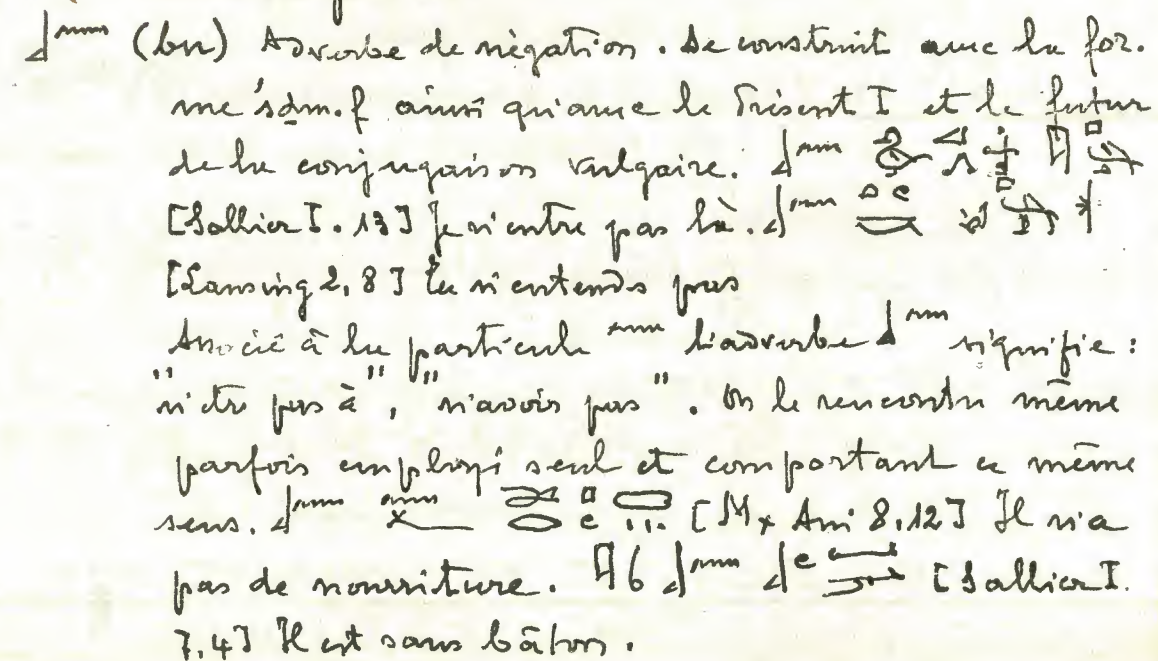 (bn) Adverbe de négation. Se construit avec la for.
me śḏm.f ainsi qu'avec le Présent I et le futur
de la conjugaison vulgaire.
[Sallier I. 13] Je n'entre pas là.
[Lansing 2, 8] Tu n'entends pas
Associé à la particule l'adverbe signifie :
"n'être pas à", "n'avoir pas". On le rencontre même
parfois employé seul et comportant ce même
sens. [Mx Ani 8.12] Il n'a
pas de nourriture. [Sallier I.
7,4] Il est sans bâton.